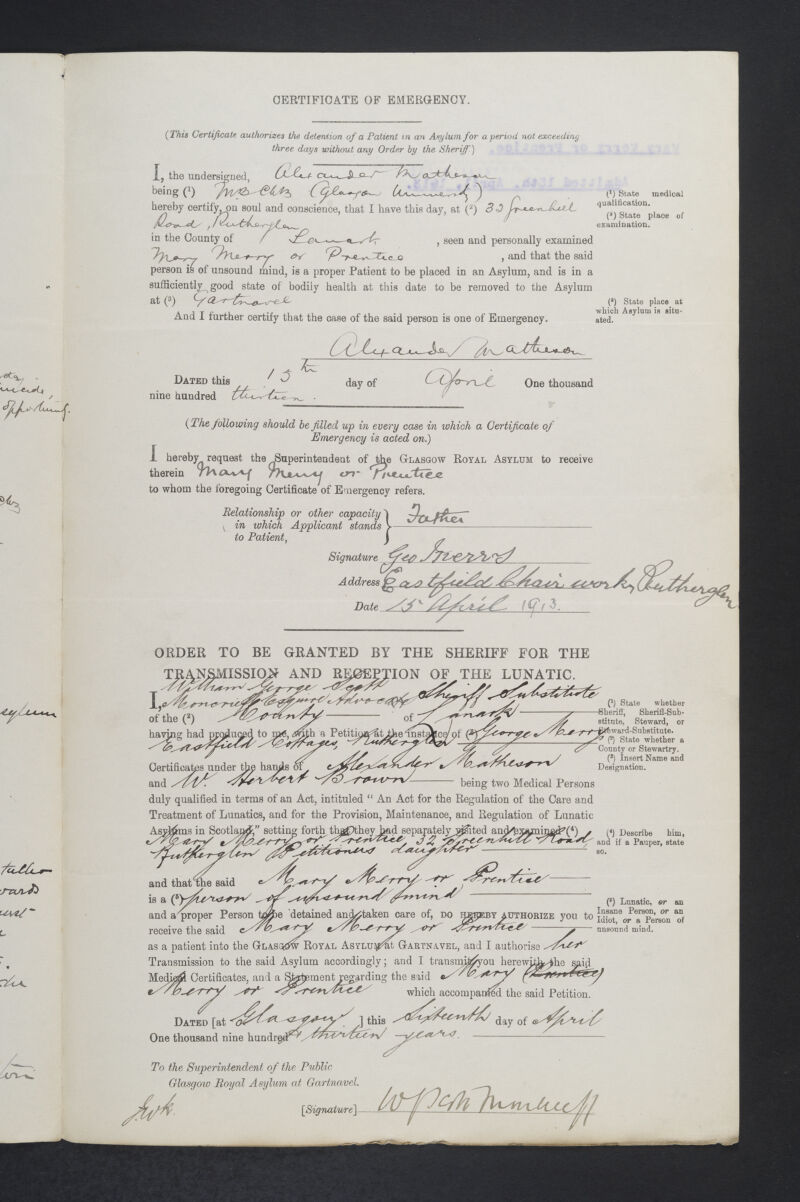 CERTIFICATE OF EMERGENCY.
(This Certificate authorizes the detension of a Patient in an Asylum for a period not exceeding
three days without any Order by the Sheriff.)
I, the undersigned, Alexander Matheson
being (¹) MB ChB (Glasgow University)
hereby certify, on soul and conscience, that I have this day, at (²) 32 Greenhill
Road, Rutherglen
in the County of Lanark, seen and personally examined
Mary Merry or Prentice, and that the said
person is of unsound mind, is a proper Patient to be placed in an Asylum, and is in a
sufficiently good state of bodily health at this date to be removed to the Asylum
at (³) Gartnavel
And I further certify that the case of the said person is one of Emergency.
(¹) State medical
qualification.
(²) State place of
examination.
(³) State place at
which Asylum is situ-
ated.
Alexander Matheson
DATED this 15th day of April One thousand
nine hundred thirteen.
(The following should be filled up in every case in which a Certificate of
Emergency is acted on.)
I hereby request the Superintendent of the GLASGOW ROYAL ASYLUM to receive
therein Mary Merry or Prentice
to whom the foregoing Certificate of Emergency refers.
Relationship or other capacity
in which Applicant stands
to Patient, Father
Signature Geo Merry
Address Eastfield Chair works, Rutherglen
Date 15 April 1913.
ORDER TO BE GRANTED BY THE SHERIFF FOR THE
TRANSMISSION AND RECEPTION OF THE LUNATIC.
William George Scott
I, Moncrieff Esquire Advocate Sheriff Substitute
of the (²) County of Lanark
having had produced to me, with a Petition at the instance of (³) George Merry
Eastfield Cottages, Rutherglen
Certificates under the hands of Alexander Matheson
and W. Herbert Brown being two Medical Persons
duly qualified in terms of an Act, intituled "An Act for the Regulation of the Care and
Treatment of Lunatics, and for the Provision, Maintenance, and Regulation of Lunatic
Asylums in Scotland," setting forth that they had separately visited and examined (⁴)
Mary Merry or Prentice, 32 Greenhill Road
Rutherglen Petitioners daughter
and that the said Mary Merry or Prentice
is a (⁵) person of unsound mind
and a proper Person to be detained and taken care of, DO HEREBY AUTHORIZE you to
receive the said Mary Merry or Prentice
as a patient into the GLASGOW ROYAL ASYLUM at GARTNAVEL, and I authorise her
Transmission to the said Asylum accordingly; and I transmit you herewith the said
Medical Certificates, and a Statement regarding the said Mary (Prentice)
Merry or Prentice which accompanied the said Petition.
(¹) State whether
Sheriff, Sheriff-Sub-
stitute, Steward, or
Steward-Substitute.
(²) State whether a
County or Stewartry.
(³) Insert Name and
Designation.
(⁴) Describe him,
and if a Pauper, state
so.
(⁵) Lunatic, or an
Insane Person, or an
Idiot, or a Person of
unsound mind.
DATED [at Glasgow ] this Sixteenth day of April
One thousand nine hundred & thirteen years.
To the Superintendent of the Public
Glasgow Royal Asylum at Gartnavel.
[Signature] W G Scott Moncrieff